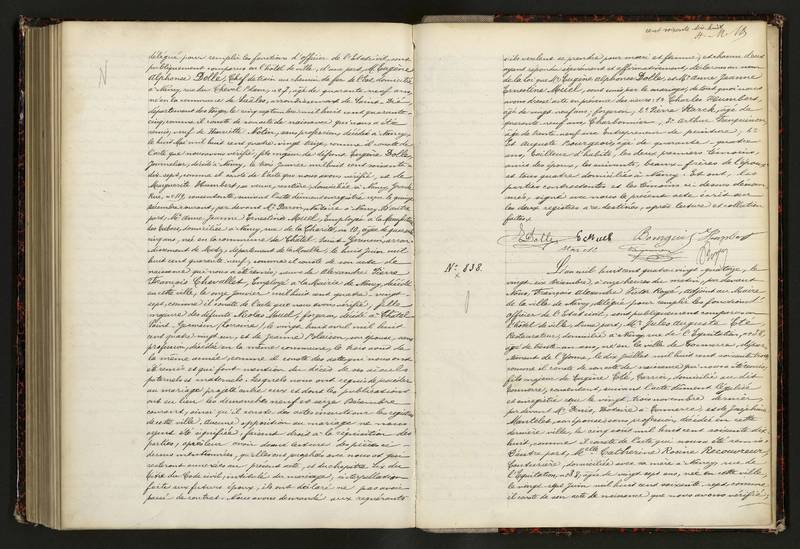 délégué pour remplir les fonctions d'officier de l'Etat civil, sont
publiquement comparus en l'hôtel de ville, d'une part, Mr Eugène
Alphonse Dollé, Chef de train au chemin de fer de l'Est, domicilié
à Nancy, rue du Cheval blanc, no 7, âgé de quarante neuf ans,
né en la commune de Saales, arrondissement de Saint-Dié
département des Vosges, le cinq mil huit cent quarante-
cinq, comme il conste de son acte de naissance qui nous a été
remis, veuf de Henriette Nolin, sans profession, décédée à Nancy,
le huit Mai mil huit cent quatre vingt treize, comme il conste de
l'acte que nous avons vérifié; fils majeur de défunt Eugène Dollé,
Journalier, décédé à Nancy, le trois Janvier mil huit cent soixante-
dix sept, comme il conste de l'acte que nous avons vérifié, et de
Marguerite Humbert, sa veuve, rentière, domiciliée à Nancy, Grande
Rue, no 119, consentante, suivant l'acte dûment enregistré
courant, par devant Me Notaire à Nancy. Et d'autre
part, Mlle Anne Jeanne Ernestine Maël, Employée à la Manufacture
des tabacs, domiciliée à Nancy, rue de la Charité, no 10, âgée de quarante
cinq ans, née en la commune de Châtel-Saint-Germain, arron-
dissement de Metz, département de la Moselle, le huit Juin mil
huit cent quarante neuf, comme il conste de son acte de
naissance qui nous a été remis, veuve de Alexandre Pierre
François Chevallet, Employé à la Mairie de Nancy, décédé
en cette ville, le onze Janvier mil huit cent quatre-vingt-
sept, comme il conste de l'acte que nous avons vérifié, fille
majeure des défunts Nicolas Maël, forgeron, décédé à Châtel
Saint-Germain (Lorraine), le vingt huit avril mil huit
cent quatre vingt un, et de Jeanne son épouse, sans
profession, décédée en la même commune, le trois août de
la même année, comme il conste des actes qui nous ont
été remis et qui font mention du décès de ses aïeuls
paternels et maternels. Lesquels nous ont requis de procéder
au mariage projeté entre eux et dont les publications
ont eu lieu les dimanches neuf et seize Décembre
courant, ainsi qu'il conste des actes inscrits aux registres
de cette ville. Aucune opposition au mariage ne nous
ayant été signifiée, faisant droit à la réquisition des
parties, après leur avoir donné lecture des pièces ci-
dessus mentionnées, qu'elles ont paraphées avec nous et qui
resteront annexées au présent acte, et du chapitre six du
titre du Code civil, intitulé du mariage, interpellation
faite aux futurs époux, ils ont déclaré ne pas avoir
passé de contrat. Nous avons demandé aux requérants
s'ils veulent se prendre pour mari et femme; et chacun d'eux
ayant répondu séparément et affirmativement, déclarons au nom
de la loi que Mr Eugène Alphonse Dollé, et Mme Anne Jeanne
Ernestine Maël, sont unis par le mariage, de tout quoi nous
avons dressé acte en présence des sieurs: 1o Charles Humbert,
âgé de vingt neuf ans, forgeron, 2o Pierre Harck, âgé de
quarante neuf ans, Charbonnier, 3o Arthur
âgé de trente neuf ans Entrepreneur de peinture, 4o
Et Auguste Bourgeois, âgé de quarante-quatre
ans, Tailleur d'habits, les deux premiers témoins,
amis des époux, les suivants, beaux-frères de l'épouse
et tous quatre domiciliés à Nancy. Et ont, les
parties contractantes et les témoins ci-dessus dénom-
més, signé avec nous le présent acte écrit sur
les deux registres à ce destinés, après lecture et collation
faites.
E Dollé E Maël Bourgeois Humbert
No 838.
L'an mil huit cent quatre vingt quatorze, le
vingt six Décembre, à onze heures du matin, par devant
Nous, François Alexandre Victor Noyé, adjoint au Maire
de la ville de Nancy, délégué pour remplir les fonctions
d'officier de l'Etat civil, sont publiquement comparus en
l'hôtel de ville, d'une part, Mr Jules Auguste Clé
Restaurateur, domicilié à Nancy, rue de l'Equitation, no 28,
âgé de trente un ans, né en la ville de Tonnerre, dépar-
tement de l'Yonne, le dix Juillet mil huit cent soixante trois,
comme il conste de son acte de naissance qui nous a été remis,
fils majeur de Eugène Clé, domicilié au dit
Tonnerre, consentant, suivant l'acte dûment légalisé
et enregistré que le vingt trois novembre dernier,
par devant Me Denis, Notaire à Tonnerre; et de Joséphine
Mantelet, son épouse, sans profession, décédée en cette
dernière ville, le cinq août mil huit cent soixante dix
huit, comme il conste de l'acte qui nous a été remis.
D'autre part, Mlle Catherine Rosine Recouvreur,
Couturière, domiciliée avec sa mère à Nancy, rue de
l'Equitation, no 28, âgée de vingt sept ans, née en cette ville,
le vingt sept Juin mil huit cent soixante sept, comme
il conste de son acte de naissance que nous avons vérifié,